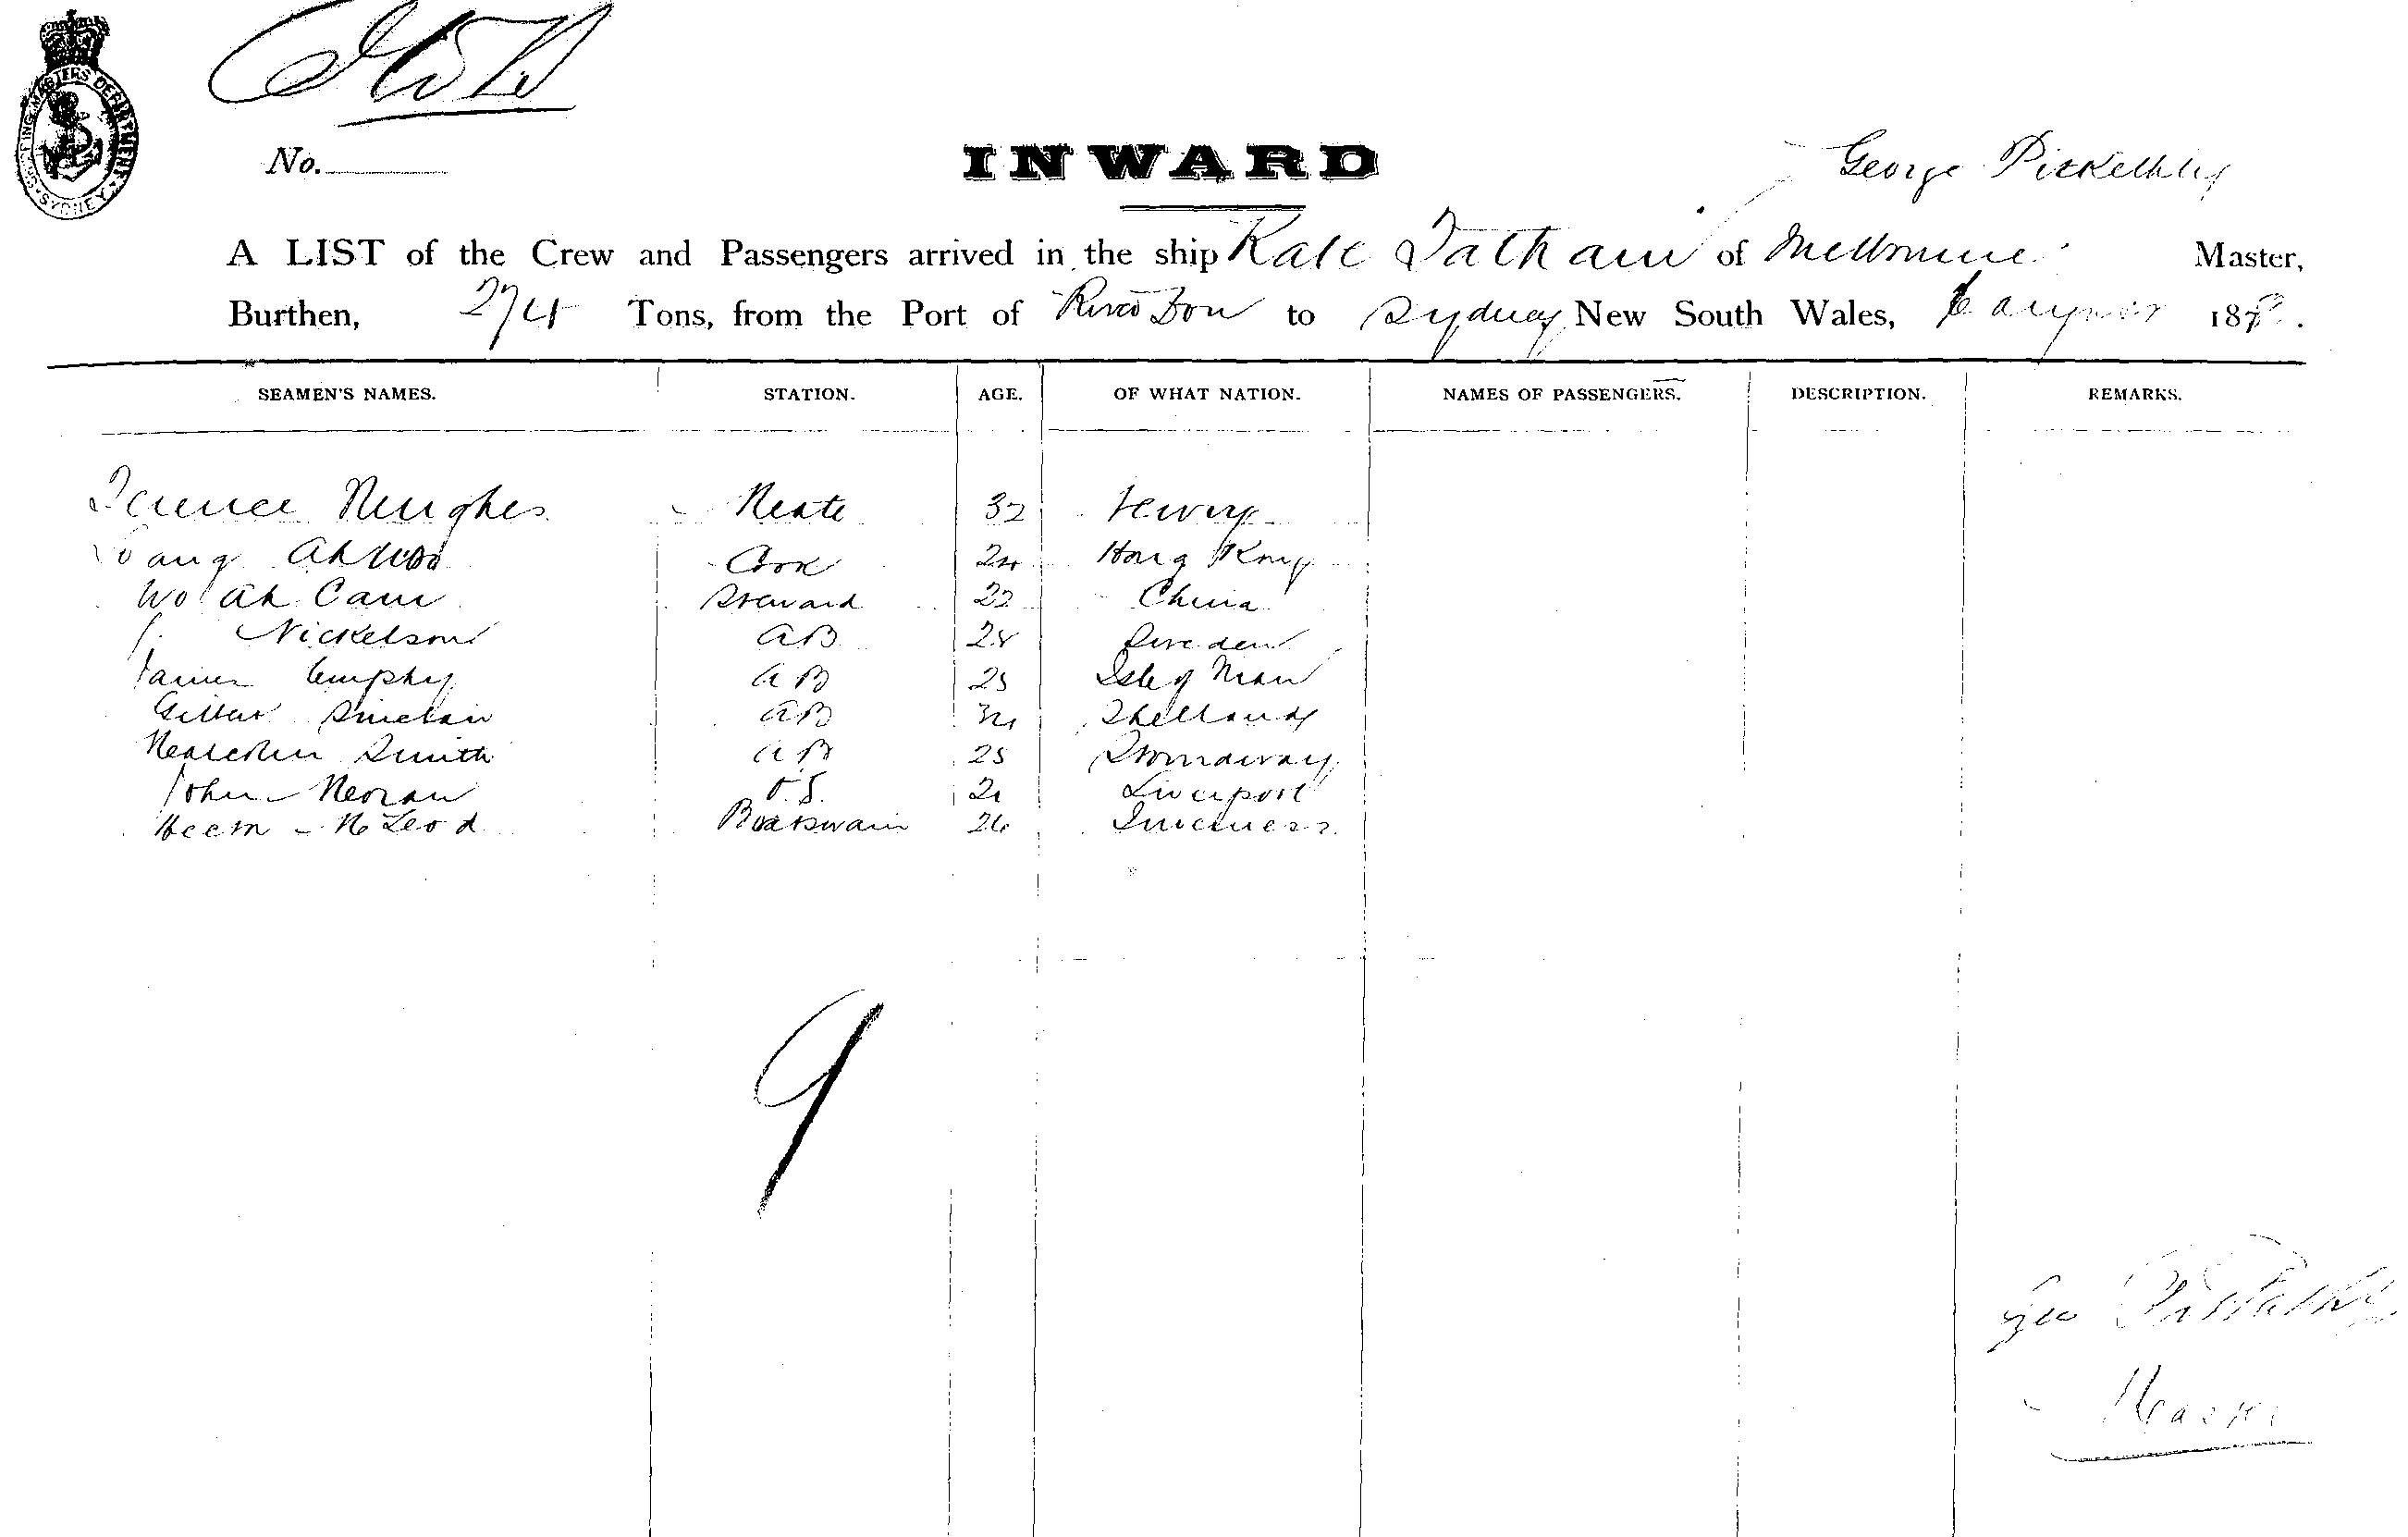 SHIPPING MASTERS DEPARTMENT SYDNEY
No.
INWARD
George
A LIST of the Crew and Passengers arrived in the ship Kate Tatham of Melbourne Master,
Burthen, 274 Tons, from the Port of River Don to Sydney New South Wales, 6 August 187
SEAMEN'S NAMES. STATION. AGE. OF WHAT NATION. NAMES OF PASSENGERS. DESCRIPTION. REMARKS.
Terence Hughes Mate 32 Newry
Ah Cook 24 Hong Kong
Ah Cam Steward 22 China
Nickelson AB 28 Sweden
James AB 25 Isle of Man
Gilbert Sinclair AB Shetland
Malcolm Smith AB 25 Stornaway
John Moran O.S. 21 Liverpool
McLeod Boatswain 26 Inverness
9
Geo
Master